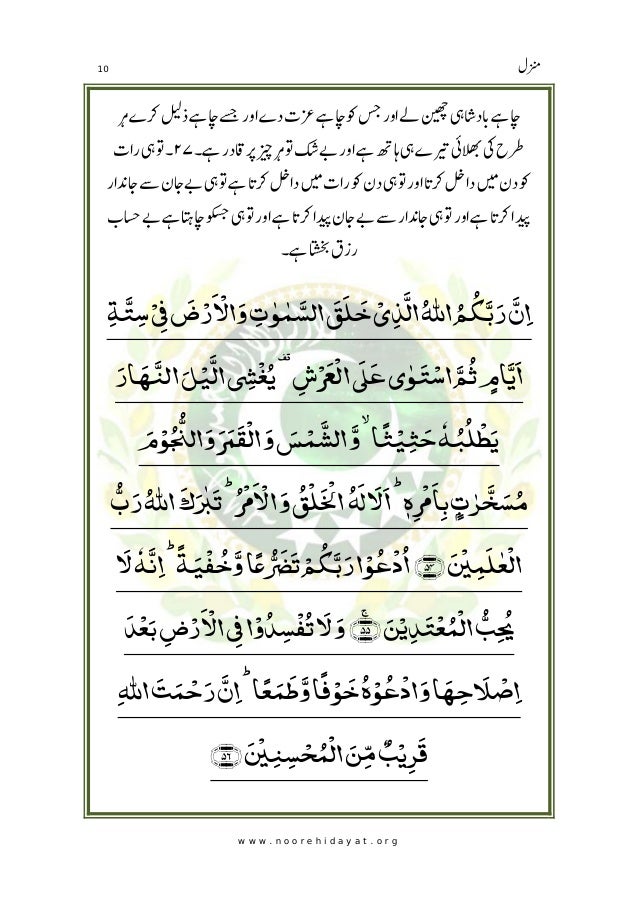 منزل 10
چاہے بادشاہی چھین لے اور جس کو چاہے عزت دے اور جسے چاہے ذلیل کرے ہر
طرح کی بھلائی تیرے ہی ہاتھ ہے اور بے شک تو ہر چیز پر قادر ہے۔۲۷۔ تو ہی رات
کو دن میں داخل کرتا اور تو ہی دن کو رات میں داخل کرتا ہے تو ہی بے جان سے جاندار
پیدا کرتا ہے اور تو ہی جاندار سے بے جان پیدا کرتا ہے اور تو ہی جسکو چاہتا ہے بے حساب
رزق بخشتا ہے۔
اِنَّ رَبَّكُمُ اللهُ الَّذِیْ خَلَقَ السَّمٰوٰتِ وَالْاَرْضَ فِیْ سِتَّةِ
اَیَّامٍ ثُمَّ اسْتَوٰی عَلَی الْعَرْشِ ۫ یُغْشِی الَّیْلَ النَّهَارَ
یَطْلُبُهٗ حَثِیْثًا ۙ وَّ الشَّمْسَ وَ الْقَمَرَ وَ النُّجُوْمَ
مُسَخَّرٰتٍۭ بِاَمْرِهٖ ؕ اَلَا لَهُ الْخَلْقُ وَ الْاَمْرُ ؕ تَبٰرَكَ اللهُ رَبُّ
الْعٰلَمِیْنَ ﴿۵۴﴾ اُدْعُوْا رَبَّكُمْ تَضَرُّعًا وَّخُفْیَةً ؕ اِنَّهٗ لَا
یُحِبُّ الْمُعْتَدِیْنَ ﴿۵۵﴾ۚ وَ لَا تُفْسِدُوْا فِی الْاَرْضِ بَعْدَ
اِصْلَاحِهَا وَادْعُوْهُ خَوْفًا وَّطَمَعًا ؕ اِنَّ رَحْمَتَ اللهِ
قَرِیْبٌ مِّنَ الْمُحْسِنِیْنَ ﴿۵۶﴾
www.noorehidayat.org